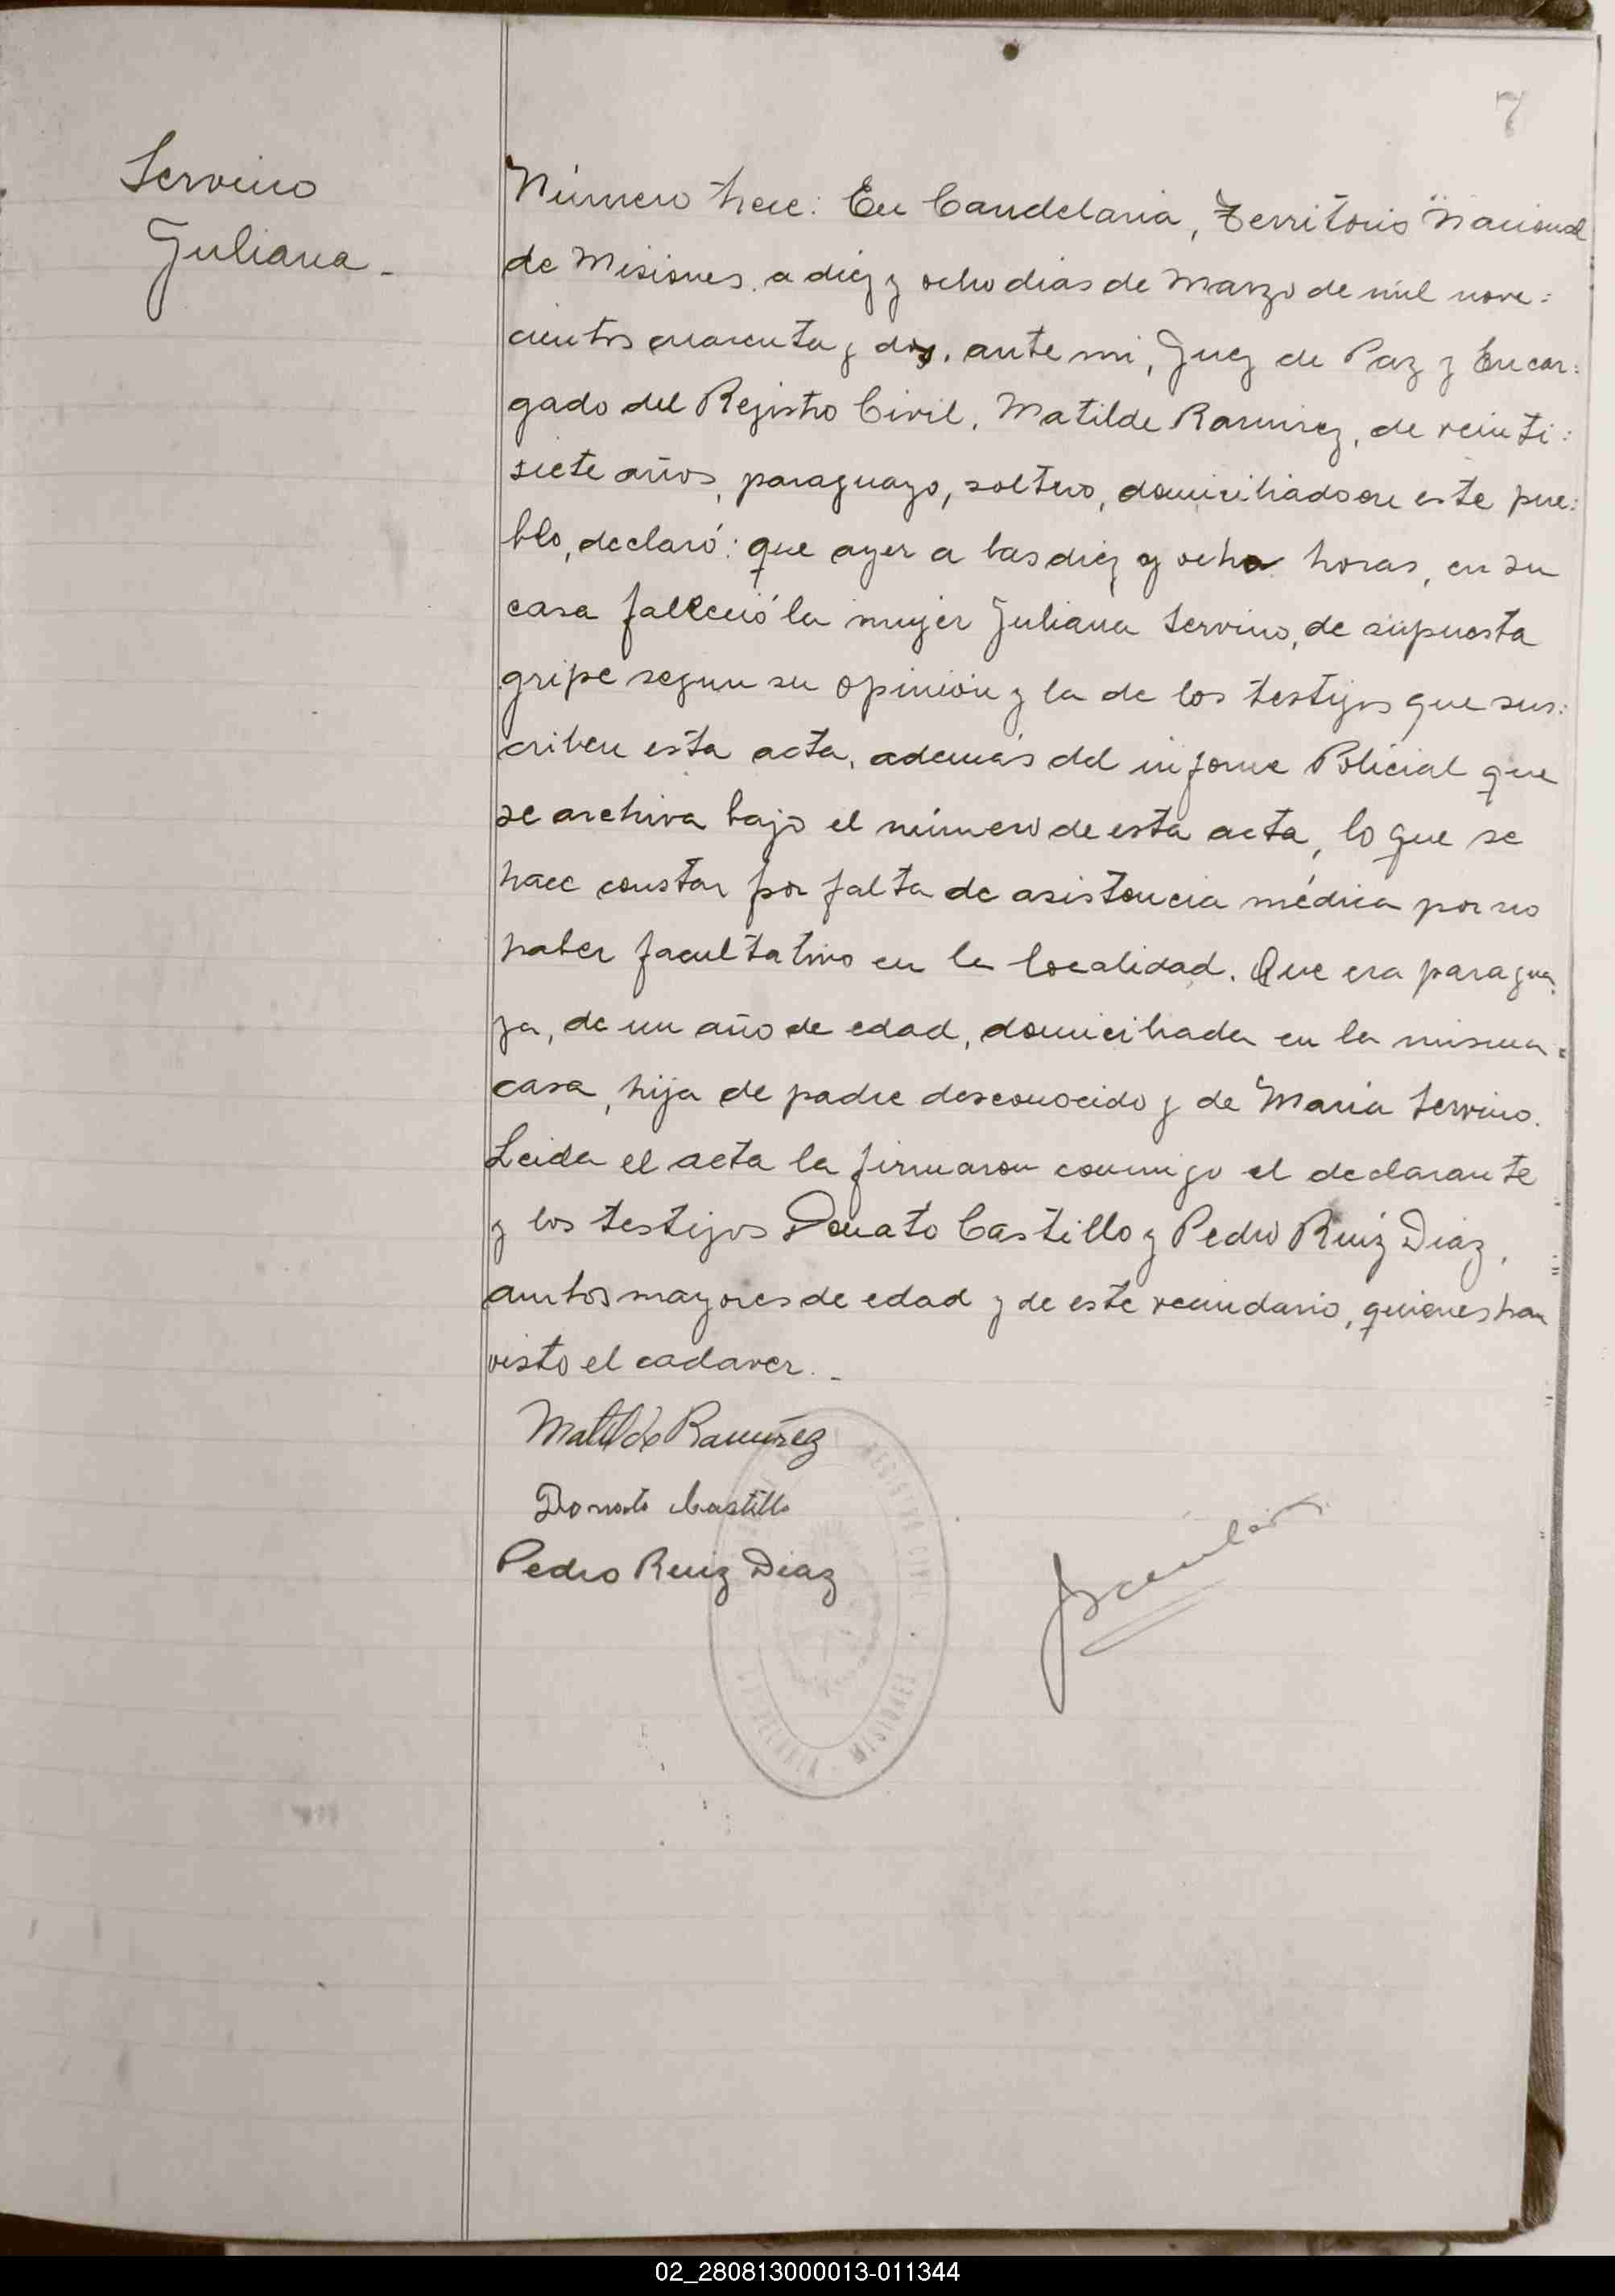 7
Servino
Juliana.-
Número trece: En Candelaria, Territorio Nacional
de Misiones, a diez y ocho dias de Marzo de mil nove-
cientos cuarenta y dos, ante mi, Juez de Paz y Encar-
gado del Registro Civil, Matilde Ramirez, de veinti-
siete años, paraguayo, soltero, domiciliado en este pue-
blo, declaró: que ayer a las diez y ocho horas, en su
casa falleció la mujer Juliana Servino, de supuesta
gripe segun su opinión y la de los testigos que sus-
criben esta acta, además del informe Policial que
se archiva bajo el número de esta acta, lo que se
hace constar por falta de asistencia médica por no
haber facultativo en la localidad. Que era paragua-
ya, de un año de edad, domiciliada en la misma
casa, hija de padre desconocido y de Maria Servino.
Leida el acta la firmaron conmigo el declarante
y los testigos Donato Castillo y Pedro Ruiz Diaz,
ambos mayores de edad y de este vecindario, quienes han
visto el cadaver.-
Matilde Ramirez
Donato Castillo
Pedro Ruiz Diaz
REGISTRO CIVIL
MISIONES
02_280813000013-011344